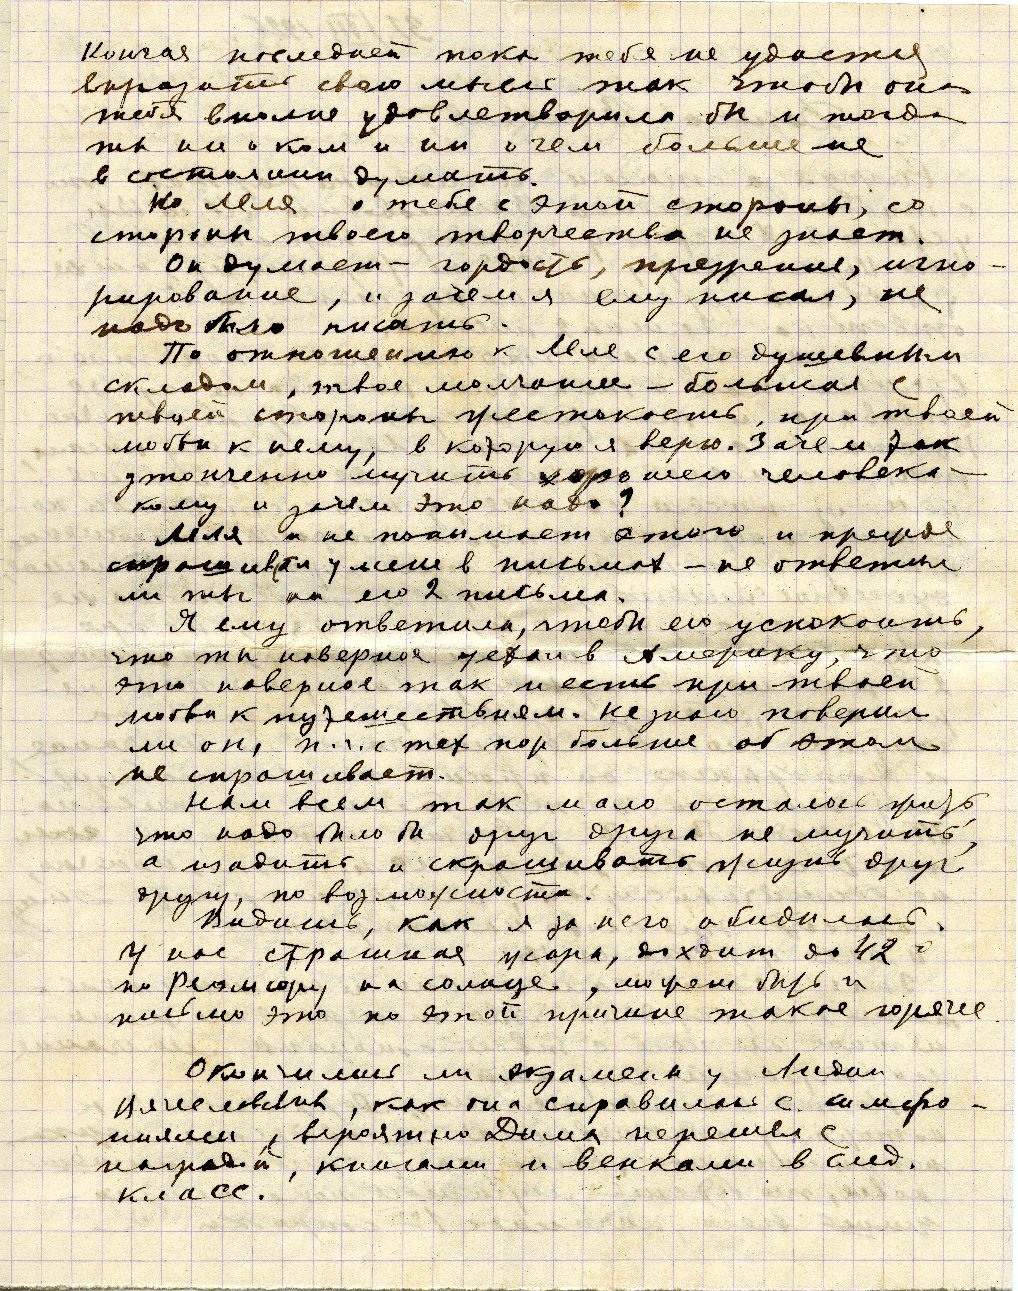 Кончая последней пока тебе не удастся
выразить свою мысль так чтобы она
тебя вполне удовлетворила бы и тогда
ты ни о ком и ни о чем больше не
в состоянии думать.
Но Леля о тебе с этой стороны, со
стороны твоего творчества не знает.
Он думает — гордость, презрение, игно-
рирование, и зачем я ему писал, не
надо было писать.
По отношению к Леле с его душевным
складом, твое молчание — большая с
твоей стороны жестокость, при твоей
любви к нему, в которую я верю. Зачем так
утонченно мучить хорошего человека —
кому и зачем это надо?
Леля и не понимает этого и прежде
спрашивал у меня в письмах — не ответил
ли ты на его 2 письма.
Я ему ответила, чтобы его успокоить,
что ты наверное уехал в Америку, что
это наверное так и есть при твоей
любви к путешествиям. Не знаю поверил
ли он, н.ч. с тех пор больше об этом
не спрашивает.
Нам всем так мало осталось жить,
что надо было бы друг друга не мучить,
а щадить и скрашивать жизнь друг
другу, по возможности.
Видишь, как я за него обиделась.
У нас страшная жара, доходит до 42°
по Реомюру на солнце, может быть и
письмо это по этой причине такое горячее.
Окончились ли экзамены у Лидии
как она справилась с симфо-
ниями, вероятно Дима перешел с
наградой, книгами и венками в след.
класс.